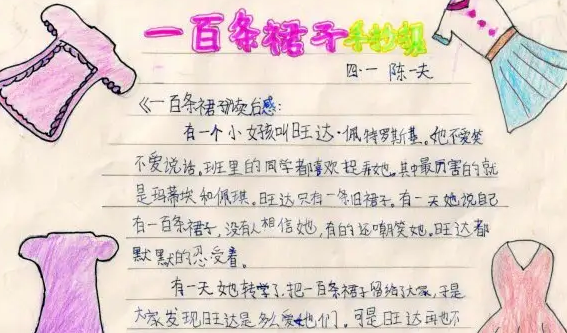 一百条裙子手抄报
四·一 陈一夫
《一百条裙子》读后感:
有一个小女孩叫旺达·佩特罗斯基。她不爱笑
不爱说话。班里的同学都喜欢捉弄她。其中最厉害的就
是玛蒂埃和佩琪。旺达只有一条旧裙子。有一天她说自己
有一百条裙子,没有人相信她,有的还嘲笑她。旺达都
默默的忍受着。
有一天她转学了,把一百条裙子留给了大家,于是
大家发现旺达是多么爱他们。可是旺达再也不